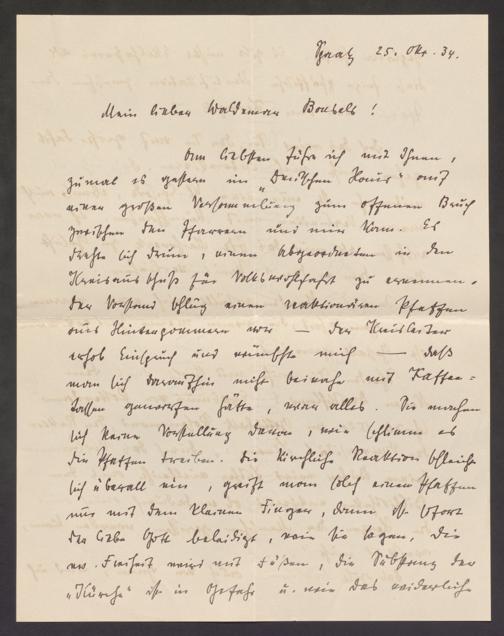 Graatz 25. Okt. 34.
Mein lieber Waldemar Bonsels!
Am liebsten führe ich mit Ihnen,
zumal es gestern im „Deutschen Haus" auf
einer großen Versammlung zum offenen Bruch
zwischen den Pfarrern und mir kam. Es
drehte sich drum, einen Abgeordneten in den
Kreisausschuß für Volkswohlfahrt zu ernennen.
Der Vorstand schlug einen reaktionären Pfaffen
aus Hinterpommern vor — der Kreisleiter
erhob Einspruch und wünschte mich — daß
man sich daraufhin nicht beinahe mit Kaffee-
tassen geworfen hätte, war alles. Sie machen
sich keine Vorstellung davon, wie schlimm es
die Pfaffen treiben. Die kirchliche Reaktion schleicht
sich überall ein, greift man solch einen Pfaffen
nur mit dem kleinen Finger, dann ist sofort
der liebe Gott beleidigt, wie Sie sagen, die
ev. Freiheit wird mit Füßen, die Substanz der
„Kirche" ist in Gefahr u. wie das widerliche